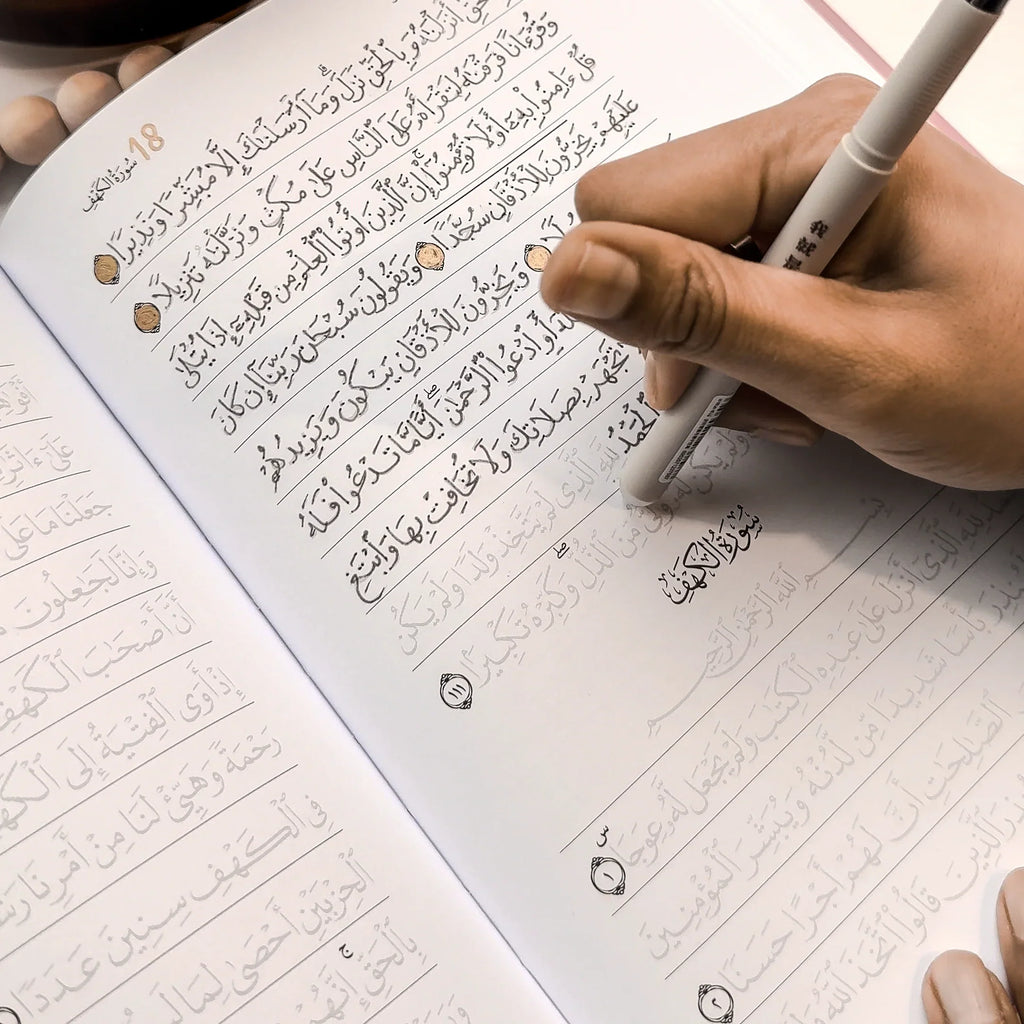 18 سُورَةُ الكَهْفِ
أَنزَلْنَٰهُ وَبِٱلْحَقِّ نَزَلَ وَمَآ أَرْسَلْنَٰكَ إِلَّا مُبَشِّرًا وَنَذِيرًا
وَقُرْءَانًا فَرَقْنَٰهُ لِتَقْرَأَهُۥ عَلَى ٱلنَّاسِ عَلَىٰ مُكْثٍ وَنَزَّلْنَٰهُ تَنزِيلًا
قُلْ ءَامِنُوا۟ بِهِۦٓ أَوْ لَا تُؤْمِنُوٓا۟ إِنَّ ٱلَّذِينَ أُوتُوا۟ ٱلْعِلْمَ مِن قَبْلِهِۦٓ إِذَا يُتْلَىٰ
عَلَيْهِمْ يَخِرُّونَ لِلْأَذْقَانِ سُجَّدًا وَيَقُولُونَ سُبْحَٰنَ رَبِّنَآ إِن كَانَ
وَيَخِرُّونَ لِلْأَذْقَانِ يَبْكُونَ وَيَزِيدُهُمْ
أَوِ ٱدْعُوا۟ ٱلرَّحْمَٰنَ أَيًّا مَّا تَدْعُوا۟ فَلَهُ
تَجْهَرْ بِصَلَاتِكَ وَلَا تُخَافِتْ بِهَا وَٱبْتَغِ
ٱلْحَمْدُ لِلَّهِ ٱلَّذِى لَمْ يَتَّخِذْ وَلَدًا وَلَمْ يَكُن
وَلَمْ يَكُن لَّهُۥ وَلِىٌّ مِّنَ ٱلذُّلِّ وَكَبِّرْهُ تَكْبِيرًۢا ١١١
سُورَةُ الكَهْفِ
بِسْمِ ٱللَّهِ ٱلرَّحْمَٰنِ ٱلرَّحِيمِ
لِلَّهِ ٱلَّذِىٓ أَنزَلَ عَلَىٰ عَبْدِهِ ٱلْكِتَٰبَ وَلَمْ يَجْعَل لَّهُۥ عِوَجَا ١
بَأْسًا شَدِيدًا مِّن لَّدُنْهُ وَيُبَشِّرَ ٱلْمُؤْمِنِينَ
ٱلصَّٰلِحَٰتِ أَنَّ لَهُمْ أَجْرًا حَسَنًا ٢
ٱلَّذِينَ قَالُوا۟ ٱتَّخَذَ ٱللَّهُ
جَعَلْنَا مَا عَلَى
وَإِنَّا لَجَٰعِلُونَ
أَنَّ أَصْحَٰبَ ٱلْكَهْفِ
إِذْ أَوَى ٱلْفِتْيَةُ إِلَى ٱلْكَهْفِ
رَحْمَةً وَهَيِّئْ لَنَا مِنْ أَمْرِنَا
فِى ٱلْكَهْفِ سِنِينَ عَدَدًا
ٱلْحِزْبَيْنِ أَحْصَىٰ لِمَا
بِٱلْحَقِّ إِنَّهُمْ